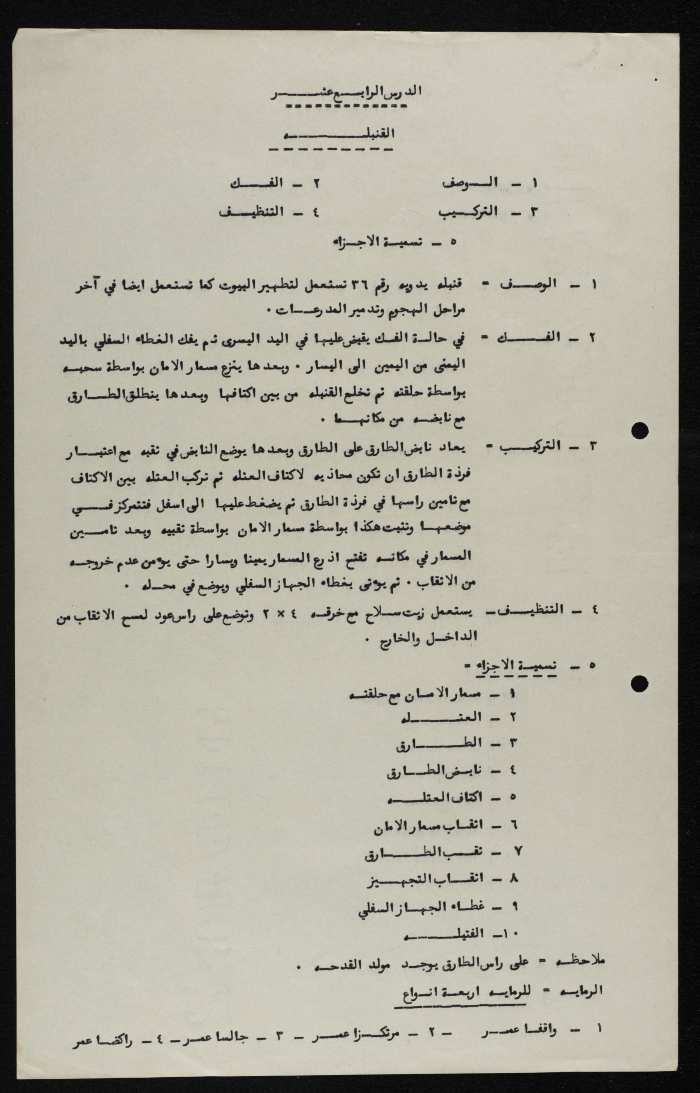 الدرس الرابع عشر
القنبله
١ - الوصف ٢ - الفك
٣ - التركيب ٤ - التنظيف
٥ - تسمية الاجزاء
١ - الوصف = قنبله يدويه رقم ٣٦ تستعمل لتطهير البيوت كما تستعمل ايضا في آخر
مراحل الهجوم وتدمير المدرعات ٠
٢ - الفك = في حالة الفك يقبض عليها في اليد اليسرى ثم يفك الغطاء السفلي باليد
اليمنى من اليمين الى اليسار ٠ وبعدها ينزع مسمار الامان بواسطة سحبه
بواسطة حلقته ثم تخلع القنبله من بين اكتافها وبعدها ينطلق الطارق
مع نابضه من مكانهما ٠
٣ - التركيب = يعاد نابض الطارق على الطارق وبعدها يوضع النابض في ثقبه مع اعتبار
فرذة الطارق ان تكون محاذيه لاكتاف العتله ثم تركب العتله بين الاكتاف
مع تامين راسها في فرذة الطارق ثم يضغط عليها الى اسفل فتتمركز في
موضعها وتثبت هكذا بواسطة مسمار الامان بواسطة ثقبيه وبعد تامين
المسمار في مكانه تفتح اذرع المسمار يمينا ويسارا حتى يؤمن عدم خروجه
من الاثقاب ٠ ثم يؤتى بغطاء الجهاز السفلي ويوضع في محله ٠
٤ - التنظيف - يستعمل زيت سلاح مع خرقه ٤ × ٢ وتوضع على راس عود لمسح الاثقاب من
الداخل والخارج ٠
٥ - تسمية الاجزاء =
١ - مسمار الامان مع حلقته
٢ - العتله
٣ - الطارق
٤ - نابض الطارق
٥ - اكتاف العتله
٦ - اثقاب مسمار الامان
٧ - ثقب الطارق
٨ - اثقاب التجهيز
٩ - غطاء الجهاز السفلي
١٠ - الفتيله
ملاحظه = على راس الطارق يوجد مولد القدحه ٠
الرمايه = للرمايه اربعة انواع
١ - واقفا عمر - ٢ - مرتكزا عمر - ٣ - جالسا عمر - ٤ - راكضا عمر